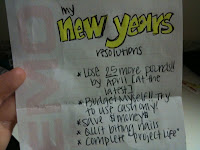 my
new years
resolutions
* Lose 25 more pounds!!
by April [at the
latest]
* Budget Myself! Try
to use cash only!
* Save $money$
* Quit biting nails
* Complete "Project Life"